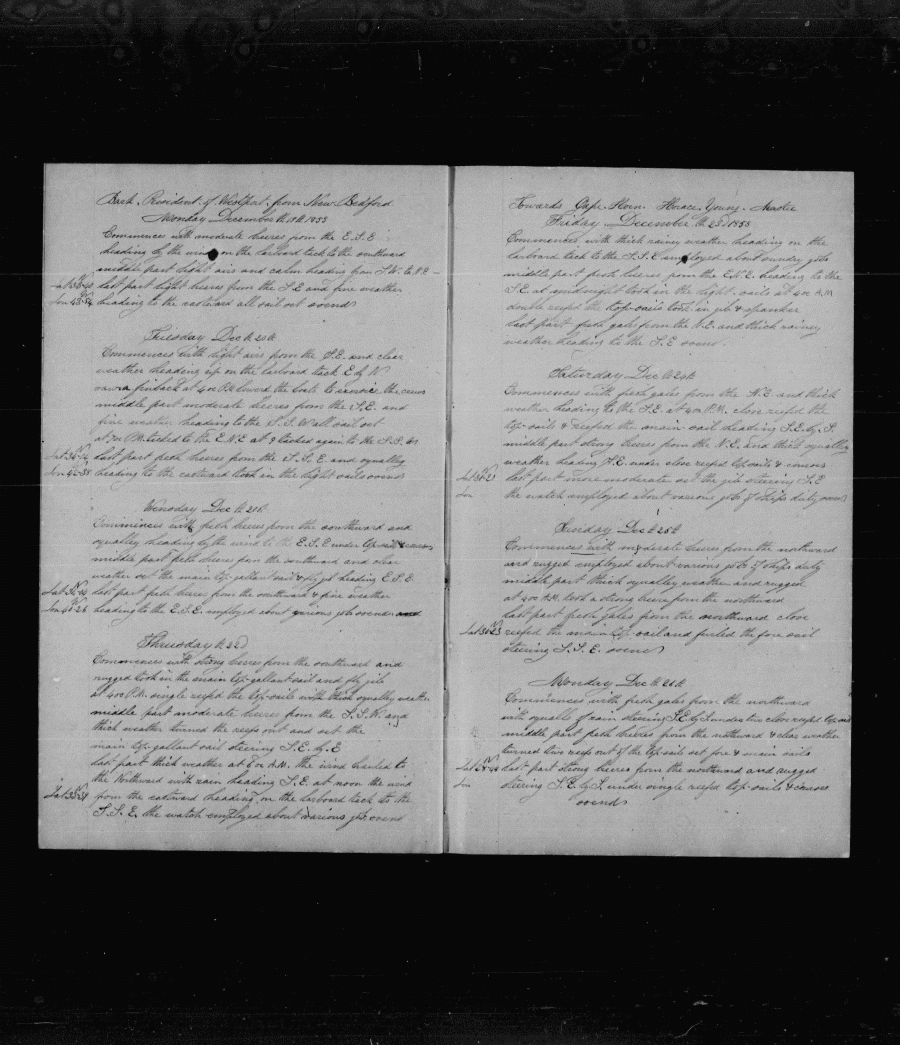 Bark. President. of Westport. from New Bedford
Monday December th 19th 1853
Commences with moderate breses from the E.S.E
heading by the wind on the larboard tack to the southward
middle part light airs and calm heading from S.W. to N.E
last part light breses from the S.E and fine weather
heading to the eastward all sail out so ends
Tuesday Dec th 20th
Commences with light airs from the S.E. and clear
weather heading up on the larboard tack E by N
saw a finback at 4 oc P.M. lowerd the boats to exercise the crews
middle part moderate breses from the S.E. and
fine weather heading to the S.S.W all sail out
at 7 oc P.M. tacked to the E.N.E at 9 tacked again to the S.S.W
last part fresh breses from the S.S.E and squally
heading to the eastward took in the light sails so ends
Wensday Dec th 21st
Commences with fresh breses from the southward and
squalley heading by the wind to the E.S.E under top-sails & courses
middle part fresh breses from the southward and clear
weather set the main top-gallant sail & fly jib heading E.S.E
last part fresh breses from the southward & fine weather
heading to the E.S.E. employed about various jobs so ends
Thrusday th 22d
Commences with strong breses from the southward and
rugged took in the main top-gallant sail and fly jib
at 4 oc P.M. single reefd the top-sails with thick squalley weather
middle part moderate breses from the S.S.W. and
thick weather turned the reefs out and set the
main top-gallant sail steering S.E. by. E
last part thick weather at 6 oc A.M. the wind hauled to
the Northward with rain heading S.E. at noon the wind
from the eastward heading on the larboard tack to the
S.S.E. the watch employed about various jobs so ends
Towards Cape. Horn. Horace. Young. Master
Friday December th 23d 1853
Commences with thick rainey weather heading on the
larboard tack to the S.S.E employed about sundry jobs
middle part fresh breses from the E.N.E. heading to the
S.E at midnight took in the light-sails at 4 oc A.M
double reefd the top-sails took in jib & spanker
last part fresh gales from the N.E. and thick rainey
weather heading to the S.E so ends.
Saturday Dec th 24th
Commences with fresh gales from the N.E and thick
weather heading to the S.E. at 4 oc P.M. close reefed the
top-sails & reefed the main sail heading S.E. by. S.
middle part strong breses from the N.E. and thick squalley
weather heading S.E. under close reefd top-sails & courses
last part more moderate set the jib steering S.E
the watch employed about various jobs of ships duty so ends
Sunday Dec th 25th
Commences with moderate breses from the northward
and rugged employed about various jobs of ships duty
middle part thick squalley weather and rugged
at 4 oc A.M. took a strong brese from the northward
last part fresh gales from the northward close
reefed the main top-sail and furled the fore sail
steering S.S.E. so ends
Monday Dec th 26th
Commences with fresh gales from the northward
with squalls of rain steering S.E by S under two close reefd top-sails
middle part fresh breses from the northward & clear weather
turned two reefs out of the top-sails set fore & main sails
last part strong breses from the northward and rugged
steering S.E. by S. under single reefed top-sails & courses
so ends